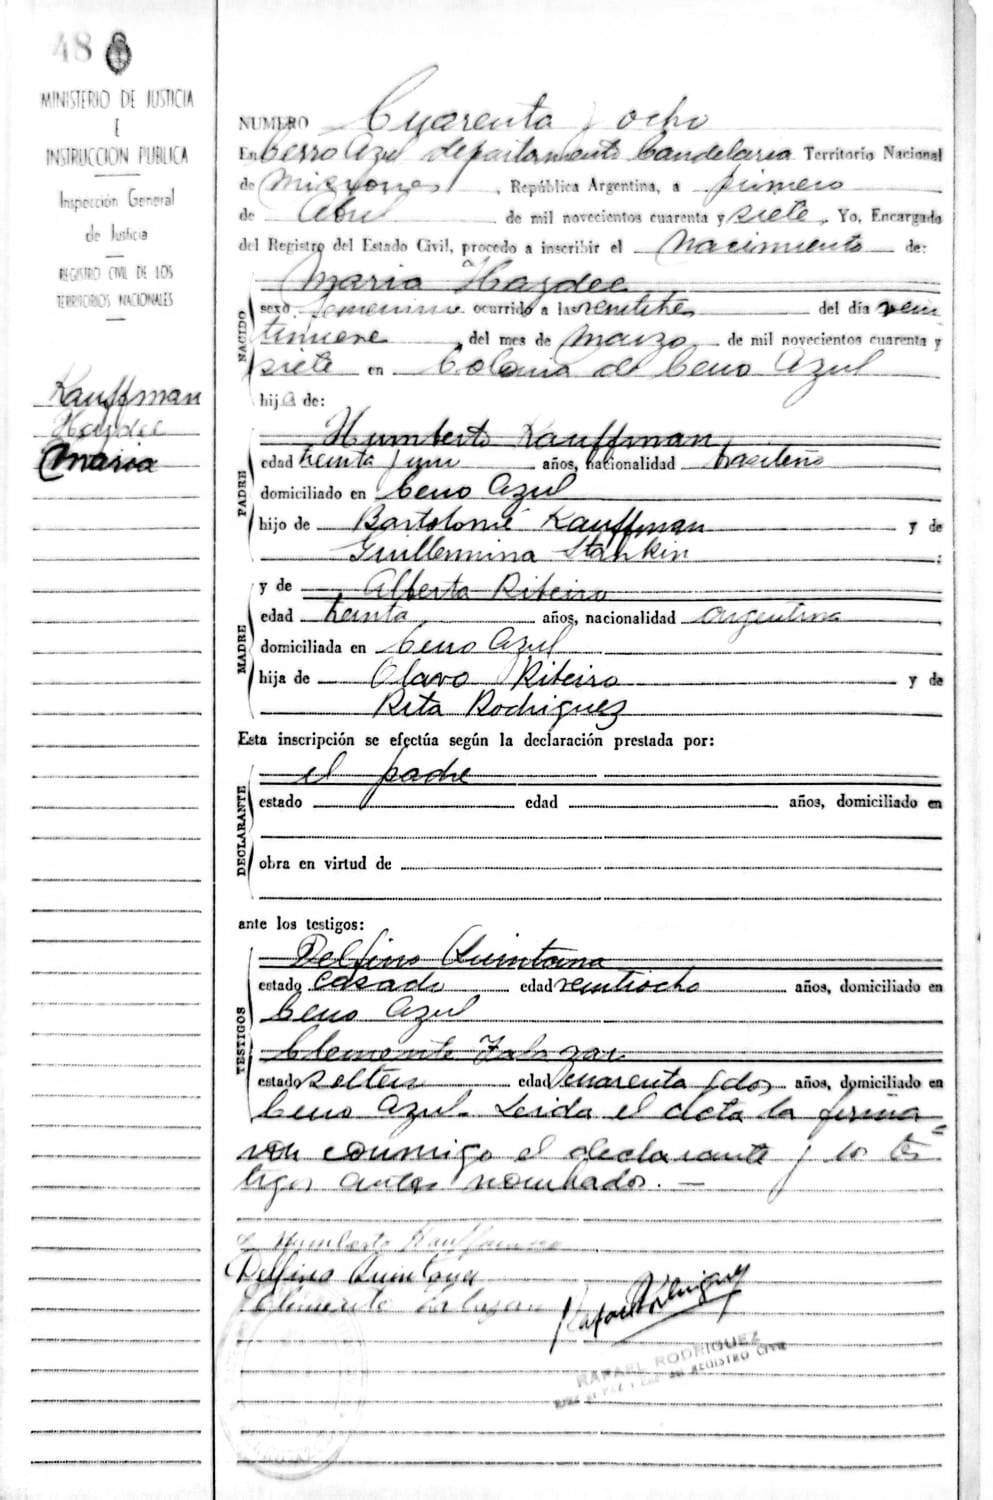 48
MINISTERIO DE JUSTICIA
E
INSTRUCCION PUBLICA
Inspección General
de Justicia
REGISTRO CIVIL DE LOS
TERRITORIOS NACIONALES
Kauffman
Haydee
Maria
NUMERO Cuarenta y ocho
En Cerro Azul departamento Candelaria Territorio Nacional
de Misiones, República Argentina, a primero
de Abril de mil novecientos cuarenta y siete, Yo, Encargado
del Registro del Estado Civil, procedo a inscribir el nacimiento de:
NACIDO
Maria Haydee
sexo femenino ocurrido a las veintitres del día vein
tinueve, del mes de Marzo de mil novecientos cuarenta y
siete en Colonia de Cerro Azul
hija de:
PADRE
Humberto Kauffman
edad treinta y uno años, nacionalidad brasileño
domiciliado en Cerro Azul
hijo de Bartolomé Kauffman y de
Guillermina Stankin;
MADRE
y de Alberta Ribeiro
edad treinta años, nacionalidad argentina
domiciliada en Cerro Azul
hija de Olavo Ribeiro y de
Rita Rodriguez
Esta inscripción se efectúa según la declaración prestada por:
DECLARANTE
el padre
estado edad años, domiciliado en
obra en virtud de
ante los testigos:
TESTIGOS
Delfino Quintana
estado casado edad veintiocho años, domiciliado en
Cerro Azul
Clemente
estado soltero edad cuarenta y dos años, domiciliado en
Cerro Azul. Leida el acta la firma=
ron conmigo el declarante y los tes
tigos antes nombrados. —
Humberto Kauffmann
Delfino Quintana
Clemente
Rafael Rodriguez
RAFAEL RODRIGUEZ
JUEZ DE PAZ Y ENC. DEL REGISTRO CIVIL